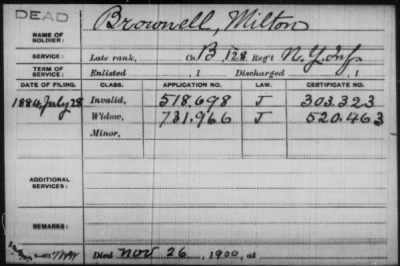 DEAD
NAME OF SOLDIER: Brownell, Milton
SERVICE: Late rank, Co. B, 128 Reg't N.Y. Inf
TERM OF SERVICE: Enlisted , 1 Discharged , 1
DATE OF FILING. CLASS. APPLICATION NO. LAW. CERTIFICATE NO.
1884 July 28 Invalid, 518.698 J 303.323
Widow, 731,966 J 520.463
Minor,
ADDITIONAL SERVICES:
REMARKS:
Died Nov 26, 1900, at